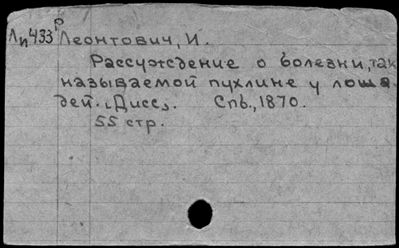 Лп433 р Леонтович, И.
Рассуждение о болезни, так
называемой пухлине у лоша
дей. [Дисс]. Спб., 1870.
55 стр.